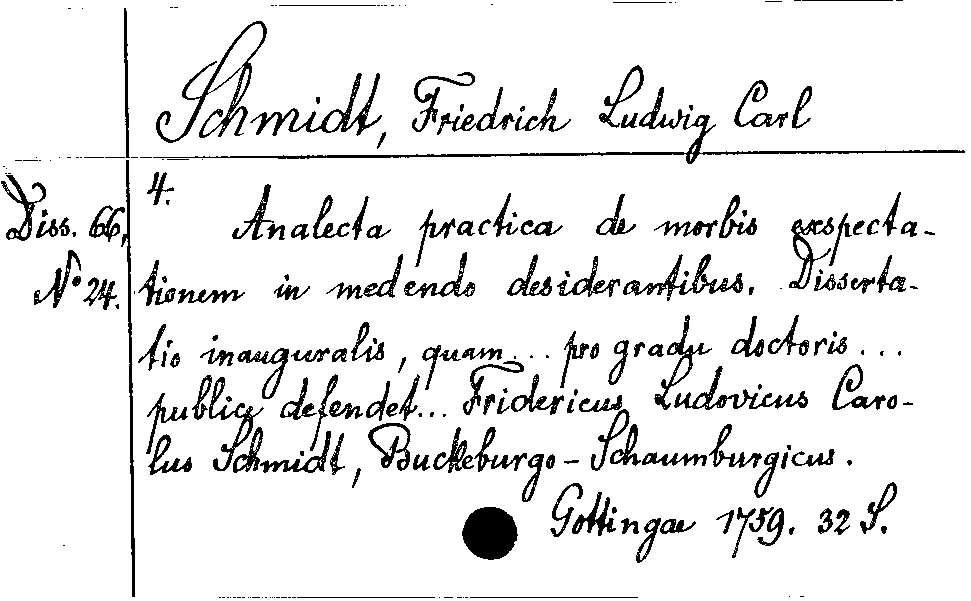 Schmidt, Friedrich Ludwig Carl
4.
Diss. 66,
No 24.
Analecta practica de morbis exspecta-
tionem in medendo desiderantibus. Disserta-
tio inauguralis, quam... pro gradu doctoris...
publice defendet... Fridericus Ludovicus Caro-
lus Schmidt, Buckeburgo-Schaumburgicus.
Gottingae 1759. 32 S.